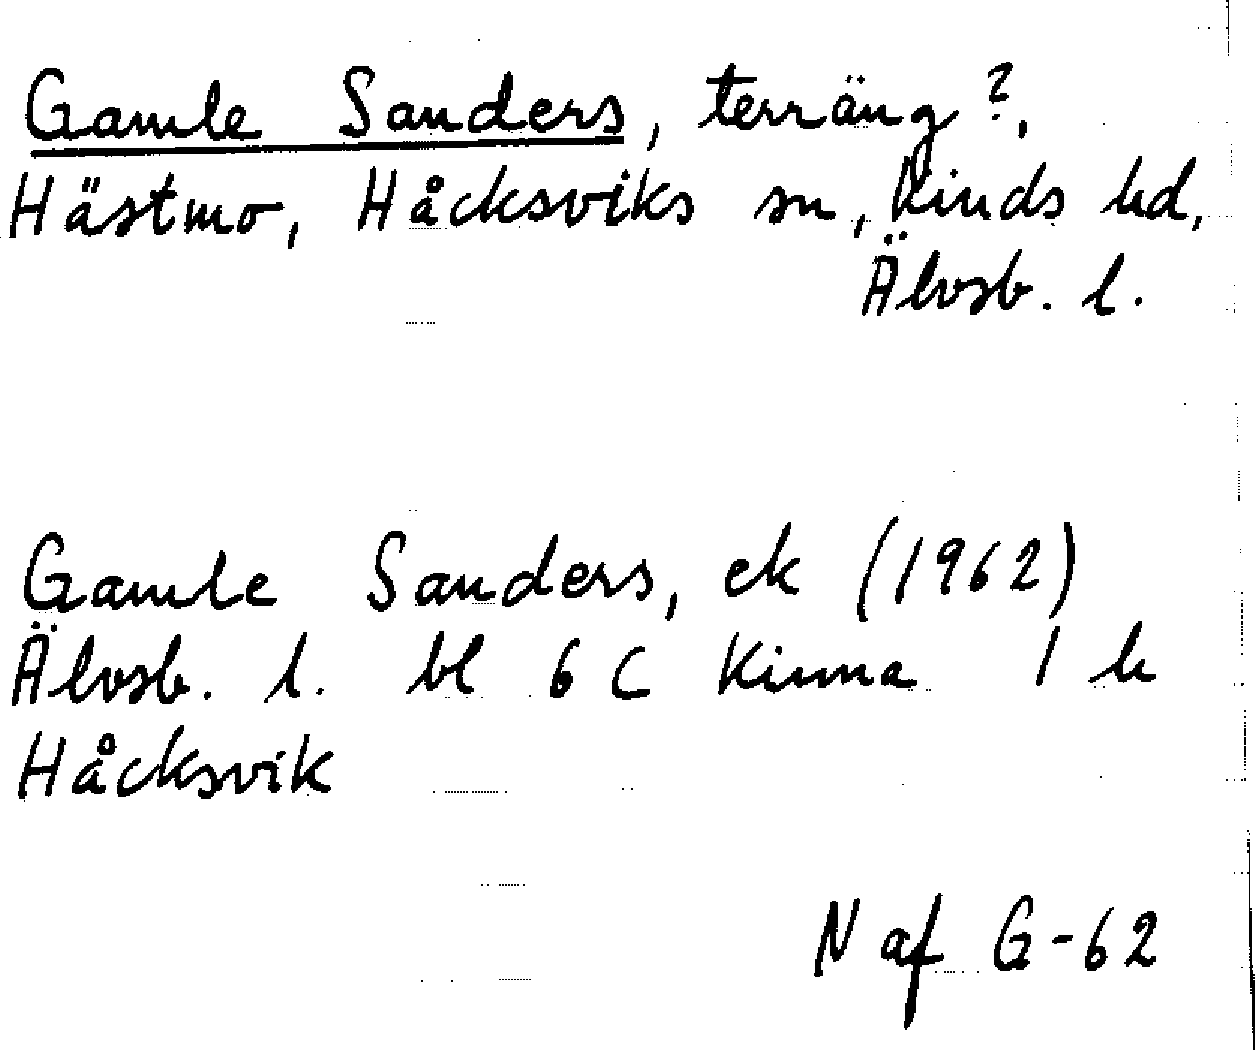 Gamle Sanders, terräng?,
Hästmo, Håcksviks sn, Kinds hd,
Älvsb. l.
Gamle Sanders, ek (1962)
Älvsb. l. bl 6 C Kinna 1 h
Håcksvik
N af G-62